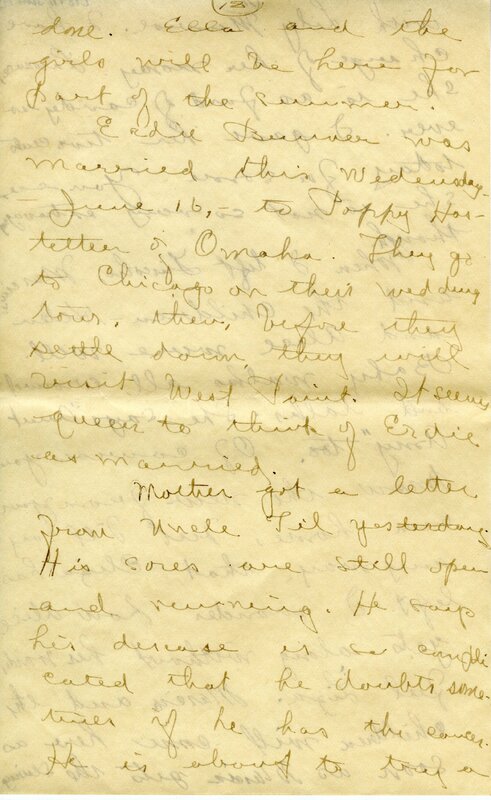 (12)
done. Ella and the
girls will be here for
part of the summer.
Erdie was
married this Wednesday
- June 16, - to Poppy Hos-
tetter of Omaha. They go
to Chicago on their wedding
tour, then, before they
settle down, they will
visit West Point. It seems
queer to think of Erdie
as married.
Mother got a letter
from Uncle Til yesterday.
His sores are still open
and running. He says
his disease is so compli
cated that he doubts some-
times if he has the cancer.
He is about to try a